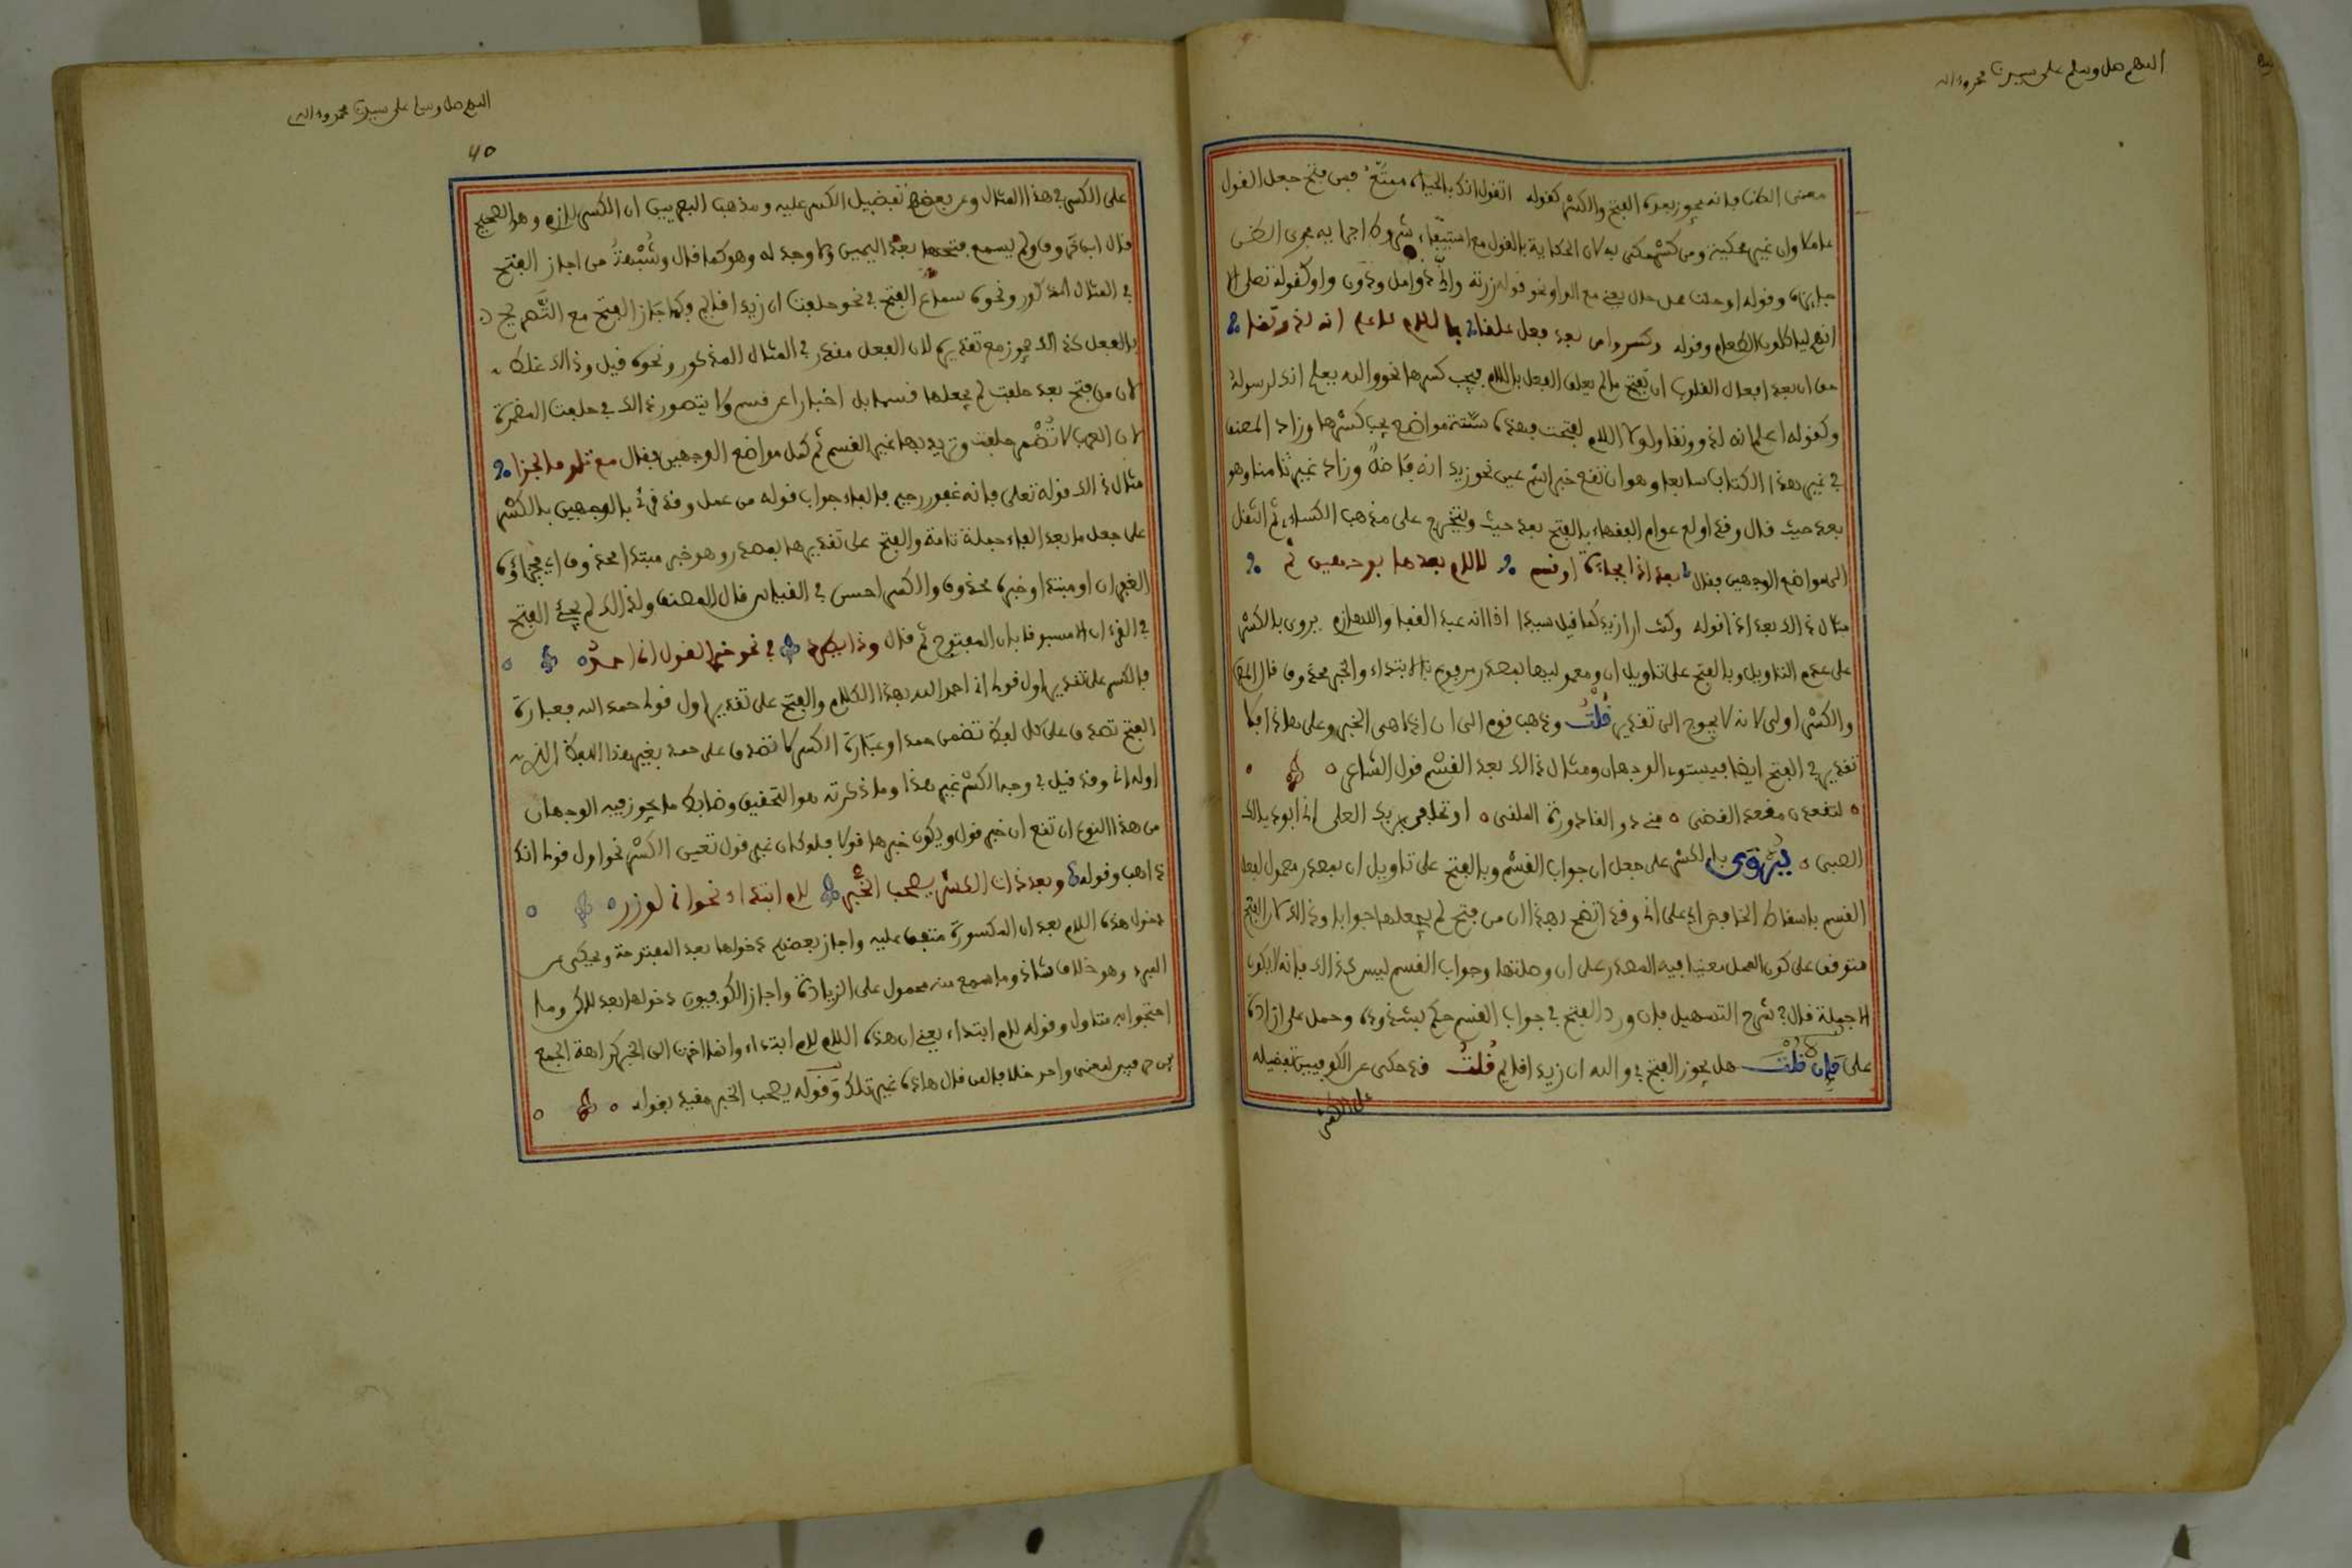 اللهم صل وسلم على سيدنا محمد وءاله
معنى الظن فانه يجوز بعده الفتح والكسر كقوله اتقول انك بالحياة ممتع فمن فتح جعل القول
عاملا وان غير محكية ومن كسر حكى به لان الحكاية بالقول مع استيفاء شروط اجرايه مجرى الظن
جايزة وقوله او حلت محل حال يعني مع الواو نحو قوله زرته واني ذو امل ودون واو كقوله تعلى الا
انهم لياكلون الطعام وقوله وكسروا من بعد فعل علقا باللام كاعلم انه لذو تقى
حق ان بعد افعال القلوب ان تفتح ما لم يعلق الفعل باللام فيجب كسرها نحو والله يعلم انك لرسوله
وكقوله اعلم انه لذو وتقا ولولا اللام لفتحت فهذه ستة مواضع يجب كسرها وزاد المصنف
في غير هذا الكتاب سابعا وهو ان تقع خبر اسم عين نحو زيد انه فاضل وزاد غيره ثامنا وهو
بعد حيث قال وقد اولع عوام الفقهاء بالفتح بعد حيث ويتخرج على مذهب الكساءي ثم انتقل
الى مواضع الوجهين فقال بعد اذا فجاءة او قسم لا لام بعدها بوجهين نم
مثال ذالك بعد اذا قوله وكنت ارا زيدا كما قيل سيدا اذا انه عبد القفا واللهازم يروى بالكسر
على عدم التاويل وبالفتح على تاويل ان ومعموليها بمصدر مرفوع بالابتداء والخبر محذوف قال المص
والكسر اولى لانه لا يحوج الى تقدير قلت وذهب قوم الى ان اذا هي الخبر وعلى هاذا فلا
تقدير في الفتح ايضا فيستوي الوجهان ومثال ذالك بعد القسم قول الشاعر
لتقعدن مقعد القصي مني ذو القاذورة المقلي او تحلفي بربك العلي اني ابو ذيالك
الصبي يروى بالكسر على جعل ان جواب القسم وبالفتح على تاويل ان بمصدر معمول لفعل
القسم باسقاط الخافض اي على اني وقد اتضح بهذا ان من فتح لم يجعلها جوابا وذالك لان الفتح
متوقف على كون المحل مغنيا فيه المصدر على ان وصلتها وجواب القسم ليس كذالك فانه لا يكون
الا جملة قال في شرح التسهيل فان ورد الفتح في جواب القسم حكم بشذوذه وحمل على ارادة
على فإن قلت هل يجوز الفتح في والله ان زيدا قايم قلت قد حكي عن الكوفيين تفضيله
على الكسر
اللهم صل وسلم على سيدنا محمد وءاله
40
على الكسر في هذا المثال وعن بعضهم تفضيل الكسر عليه ومذهب البصريين ان الكسر لازم وهو الصحيح
قال ابن خروف ولم يسمع فتحها بعد اليمين ولا وجه له وهو كما قال وشبهة من اجاز الفتح
في المثال المذكور ونحوه سماع الفتح في نحو حلفت ان زيدا قايم وكما جاز الفتح مع التصريح
بالفعل كذالك يجوز مع تقديره لان الفعل مقدر في المثال المذكور ونحوه قيل وذالك غلط
لان من فتح بعد حلفت لم يجعلها قسما بل اخبارا عن قسم ولا يتصور ذالك في حلفت المضمرة
لان العرب لا تضمر حلفت وتريد بها غير القسم ثم كمل مواضع الوجهين فقال مع تلو فا الجزا
مثال ذالك قوله تعلى فانه غفور رحيم فالفاء جواب قوله من عمل وقد قرئ بالوجهين بالكسر
على جعل ما بعد الفاء جملة تامة والفتح على تقديرها بمصدر وهو خبر مبتدا محذوف اي فجزاؤه
الغفران او مبتدا وخبره محذوف والكسر احسن في القياس قال المصنف ولذالك لم يجئ الفتح
في القرءان الا مسبوقا بان المفتوح ثم قال وذا يطرد في نحو خير القول اني احمد
فالكسر على تقدير اول قولي اني احمد الله بهذا الكلام والفتح على تقدير اول قولي حمد الله فعبارة
الفتح تصدق على كل لفظ تضمن حمدا وعبارة الكسر لا تصدق على حمد بغير هذا اللفظ الذي
اوله اني وقد قيل في وجه الكسر غير هذا وما ذكرته هو التحقيق وضابط ما يجوز فيه الوجهان
من هذا النوع ان تقع ان خبر قول ويكون خبرها قولا فلو كان غير قول تعين الكسر نحو اول قولي انك
ذاهب وقوله وبعد ذات الكسر يصحب الخبر لام ابتداء نحو اني لوزر
دخول هذه اللام بعد ان المكسورة متفق عليه واجاز بعضهم دخولها بعد المفتوحة ويحكى عن
المبرد وهو خلاف شاذ وما سمع منه محمول على الزيادة واجاز الكوفيون دخولها بعد لكن وما
احتجوا به متاول وقوله لام ابتداء يعني ان هذه اللام لام ابتداء وانما اخرت الى الخبر كراهة الجمع
بين حرفين لمعنى واحد خلافا لمن قال هاذه غير تلك وقوله يصحب الخبر مقيد بقوله